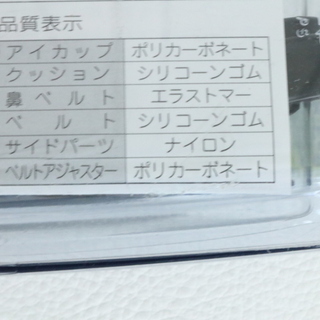 品質表示
アイカップ ポリカーボネート
クッション シリコーンゴム
鼻ベルト エラストマー
ベルト シリコーンゴム
サイドパーツ ナイロン
ベルトアジャスター ポリカーボネート